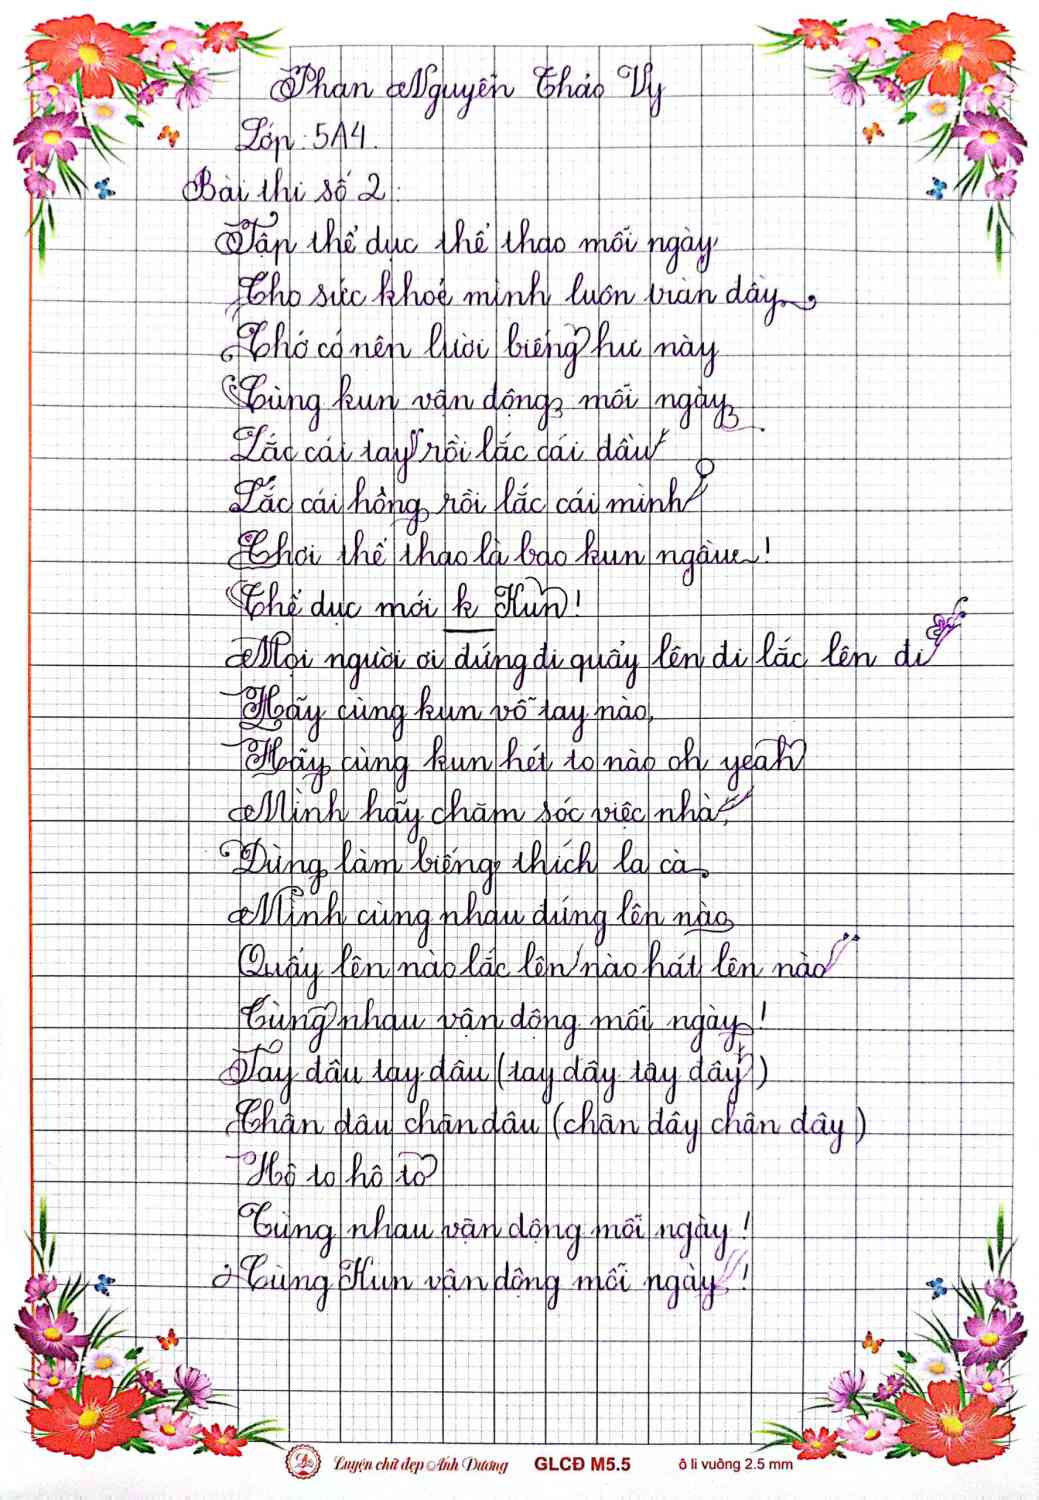 Phan Nguyên Thảo Vy
Lớp: 5A4.
Bài thi số 2:
Tập thể dục thể thao mỗi ngày
Cho sức khoẻ mình luôn tràn đầy
Chớ có nên lười biếng hư này
Cùng kun vận động mỗi ngày
Lắc cái tay rồi lắc cái đầu
Lắc cái hông rồi lắc cái mình
Chơi thể thao là bao kun ngầu!
Thể dục mới k Kun!
Mọi người ơi đứng đi quẩy lên đi lắc lên đi
Hãy cùng kun vỗ tay nào,
Hãy cùng kun hét to nào oh yeah
Mình hãy chăm sóc việc nhà,
Đừng làm biếng thích la cà
Mình cùng nhau đứng lên nào
Quẩy lên nào lắc lên nào hát lên nào
Cùng nhau vận động mỗi ngày!
Tay đâu tay đâu (tay đây tây đây)
Chân đâu chân đâu (chân đây chân đây)
Hô to hô to
Cùng nhau vận động mỗi ngày!
Cùng Kun vận động mỗi ngày!
Luyện chữ đẹp Ánh Dương GLCĐ M5.5 ô li vuông 2.5 mm